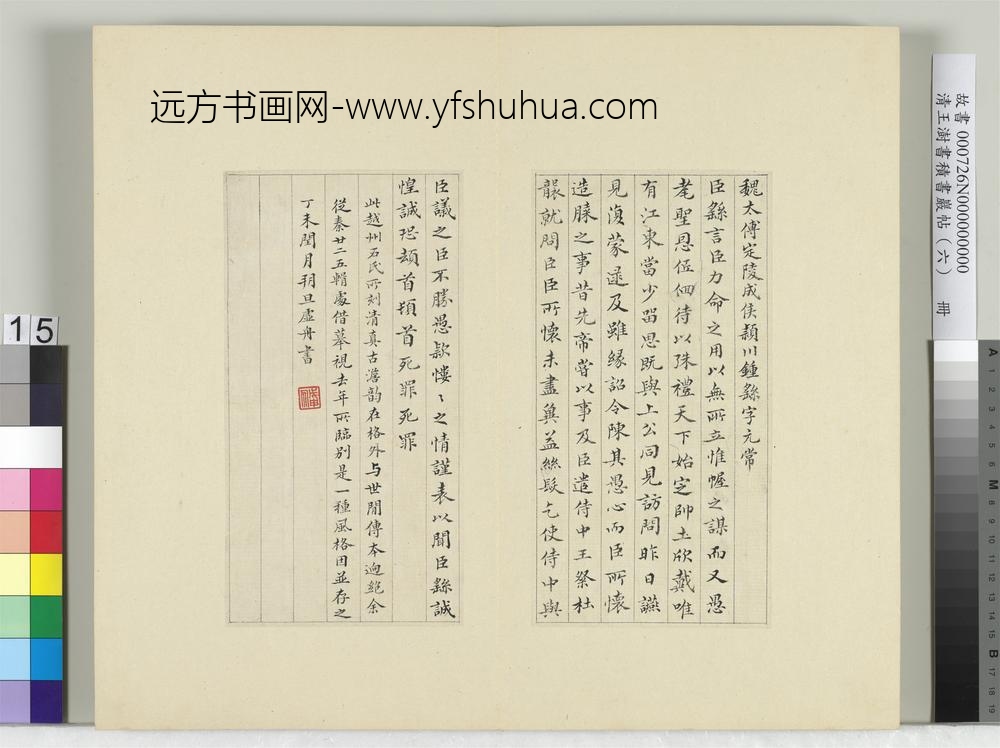 远方书画网-www.yfshuhua.com
魏太傅定陵成侯潁川鍾繇字元常
臣繇言臣力命之用以無所立惟幄之謀而又愚
耄聖恩低佪待以殊禮天下始定帥土欣戴唯
有江東當少留思既與上公同見訪問昨日讌
見復蒙逮及雖緣詔令陳其愚心而臣所懷
造膝之事昔先帝嘗以事及臣遣侍中王粲杜
襲就問臣臣所懷未盡冀益絲髮乞使侍中與
臣議之臣不勝愚款慺〻之情謹表以聞臣繇誠
惶誠恐頓首頓首死罪死罪
此越州石氏所刻清真古澹韵在格外与世間傳本迥絕余
從秦廿二五輯處借摹視去年所臨別是一種風格因並存之
丁未閏月朔旦虛舟書
故書 000726N000000000
清王澍書積書巖帖（六） 冊
15
A 1 2 3 4 5 6 M 8 9 10 11 12 13 14 15 B 17 18 19